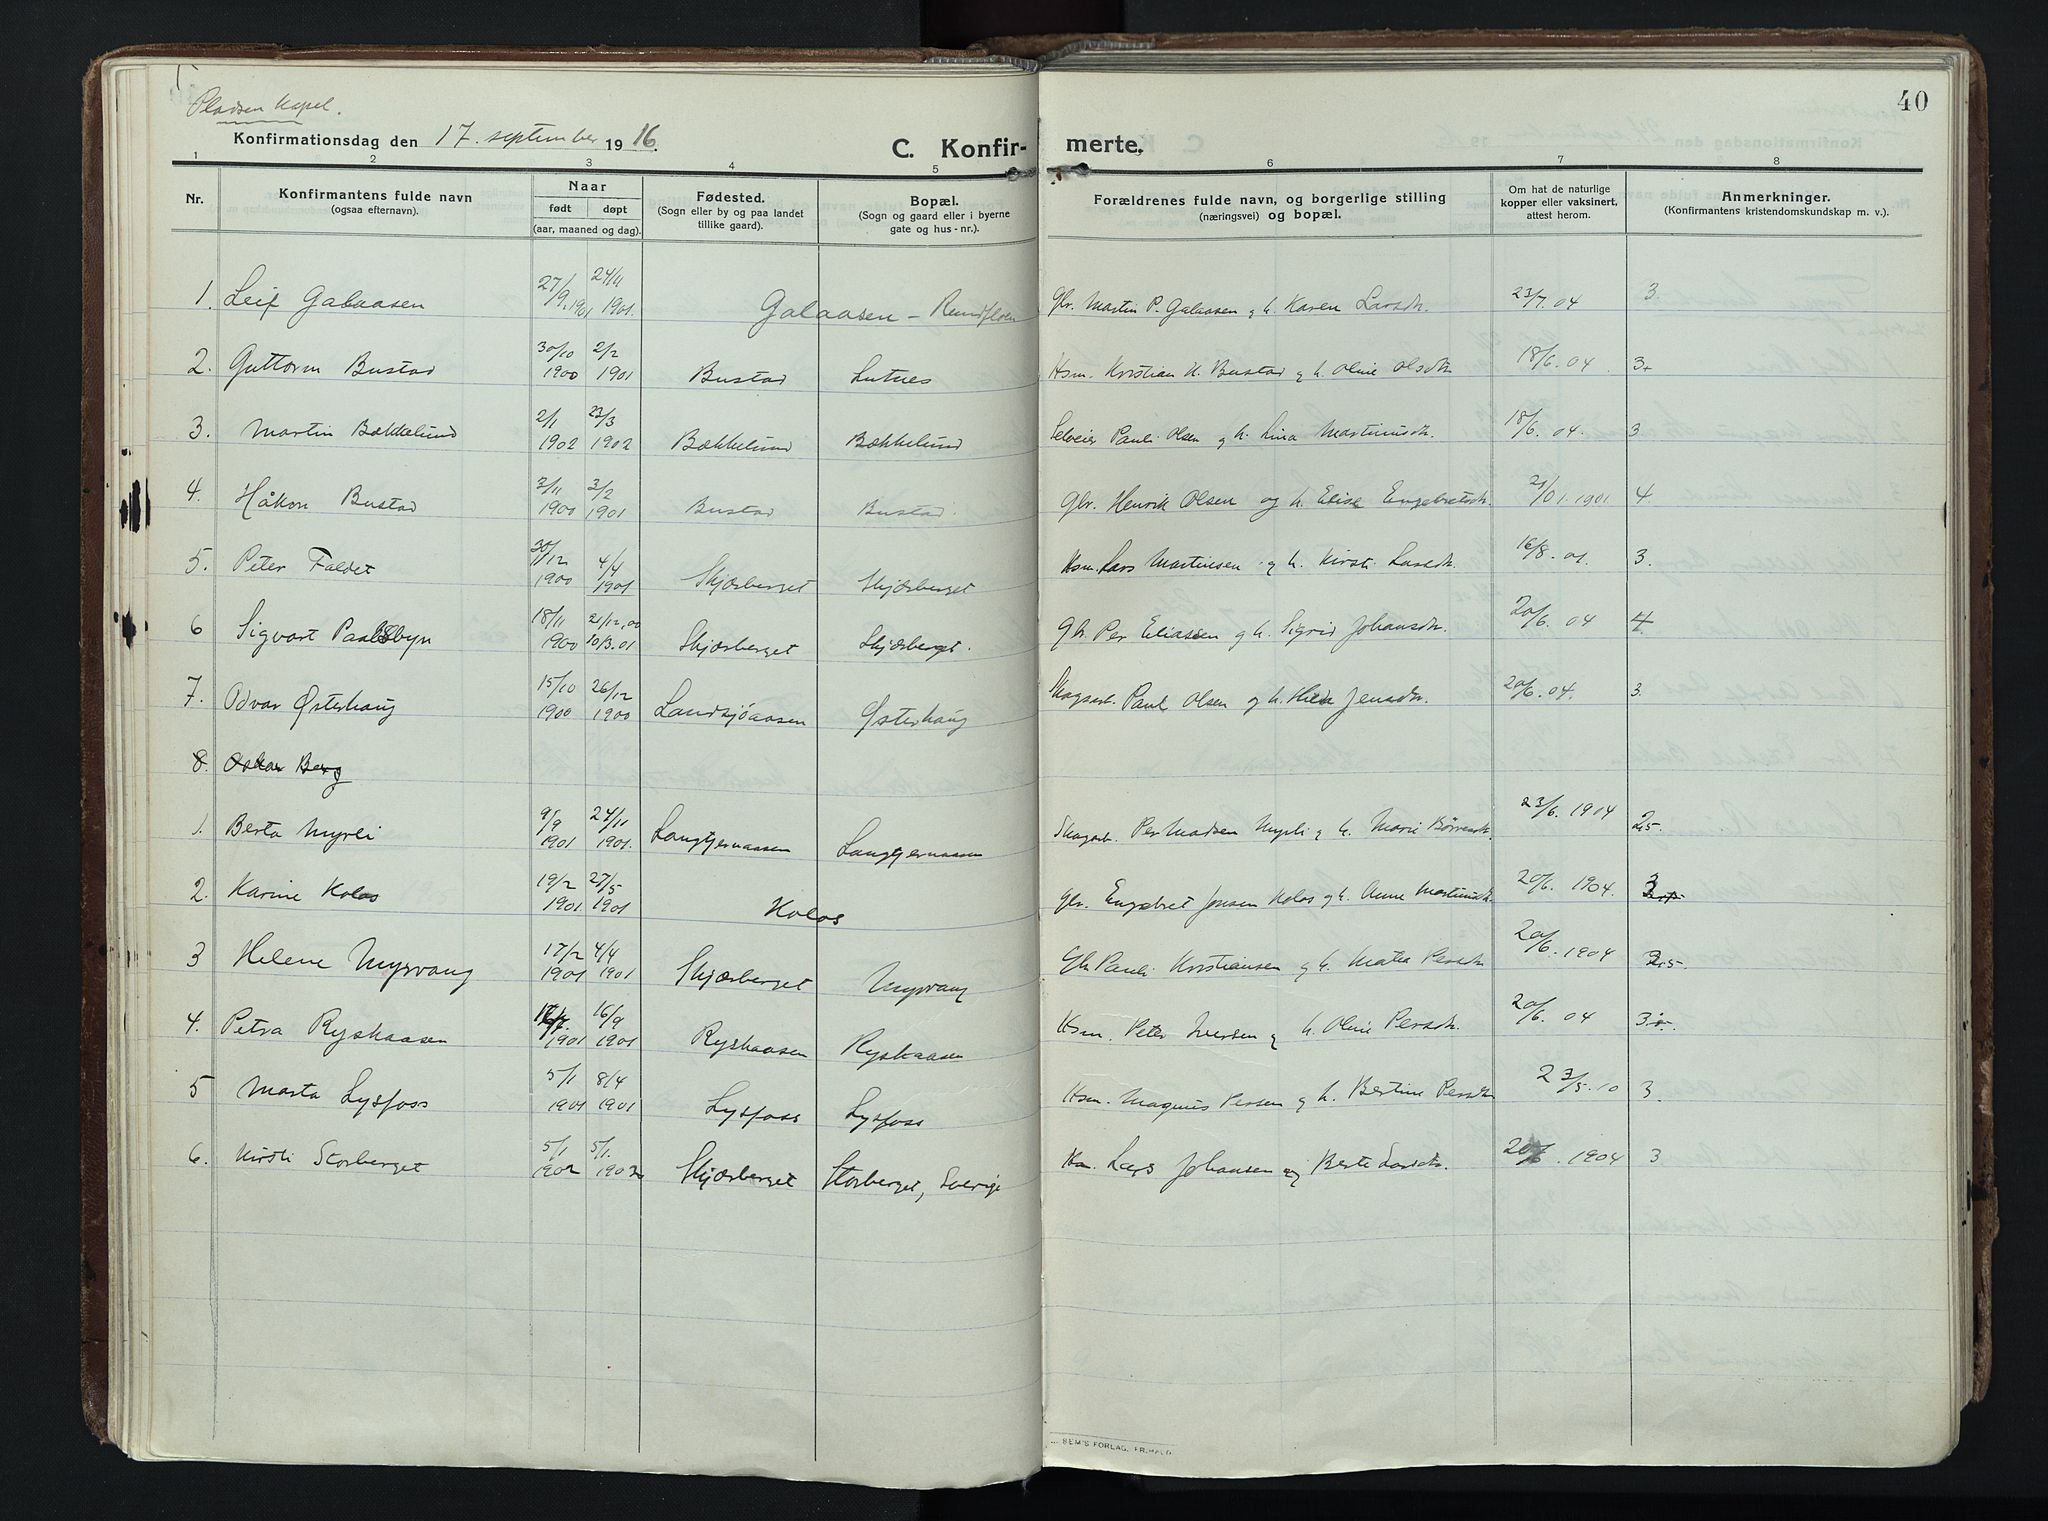 40
Pladsen Kapel.
Konfirmationsdag den 17. september 1916.
C. Konfir- merte.
1 2 3 4 5 6 7 8
Nr. Konfirmantens fulde navn (ogsaa efternavn). Naar født døpt (aar, maaned og dag). Fødested. (Sogn eller by og paa landet tillike gaard). Bopæl. (Sogn og gaard eller i byerne gate og hus-nr.). Forældrenes fulde navn, og borgerlige stilling (næringsvei) og bopæl. Om hat de naturlige kopper eller vaksinert, attest herom. Anmerkninger. (Konfirmantens kristendomskundskap m. v.).
1. Leif Galaasen 27/9 1901 24/11 1901. Galaasen - Rundfloen Gbr. Martin P. Galaasen og h. Karen Larsdtr. 23/7. 04 3.
2. Guttorm Bustad 30/10 1900 2/2 1901 Bustad Lutnes Hsm. Kristian H. Bustad og h. Oline Olsdtr. 18/6. 04. 3+
3. Martin Bækkelund 2/1 1902 23/3 1902 Bækkelund Bækkelund Selveier Paul Olsen og h. Lina Martinusdtr. 18/6. 04. 3
4. Håkon Bustad 3/11 1900 3/2 1901 Bustad Bustad. Gbr. Henrik Olsen og h. Elise Engebretsdtr. 21/01. 1901 4.
5. Peter Faldet 30/12 1900 4/4 1901 Skjærberget Skjærberget Hsm. Lars Martinsen og h. Kirsti Larsdtr. 16/8. 01. 3.
6 Sigvart Paalsbyn 18/11 1900 21/12.00 10/3.01 Skjærberget Skjærberget. Gbr. Per Eliassen og h. Sigrid Johansdtr. 20/6. 04 4.
7. Odvar Østerhaug 15/10 1900 26/12 1900 Landsjøaasen Østerhaug Skogsarb. Paul Olsen og h. Jensdtr. 20/6. 04. 3.
8. Oskar Berg
1. Berta Myrli 9/9 1901 24/11 1901. Langtjernaasen Langtjernaasen Skogarb. Per Madsen Myrli og h. Marie 23/6. 1904 2,5.
2. Karine Kolos 19/2 1901 27/5 1901 Kolos Gbr. Engebret Jonsen Kolos og h. Anne Martinusdtr. 20/6. 1904. 3
3 Helene Myrvang 17/2 1901 4/4 1901 Skjærberget Myrvang Gbr. Paul Kristiansen og h. Matea Persdtr. 20/6. 1904 2,5.
4. Petra Ryskaasen 1901 16/9 1901 Ryskaasen Ryskaasen Hsm. Peter Iversen og h. Oline Persdtr. 20/6. 04 3
5 Marta Lysfoss 5/1 1901 8/4 1901 Lysfoss Lysfoss Hsm. Magnus Persen og h. Bertine Persdtr 23/5. 10 3.
6. Kirsti Storberget 5/1 1902 5/1. 1902 Skjærberget Storberget, Sverige Hsm. Lars Johansen og Berte Larsdtr. 20/6. 1904 3
SEM'S FORLAG, FR.HALD